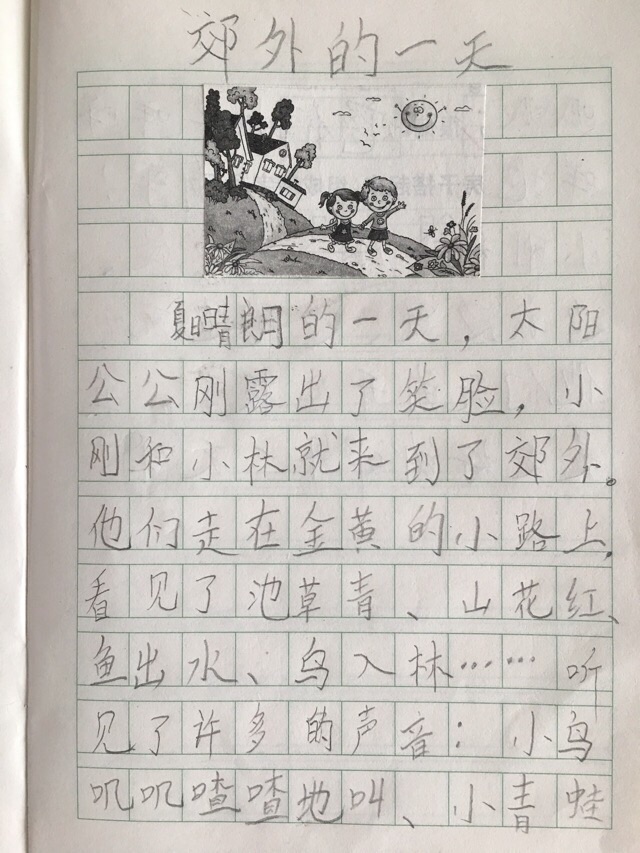 郊外的一天
夏日晴朗的一天，太阳
公公刚露出了笑脸，小
刚和小林就来到了郊外。
他们走在金黄的小路上，
看见了池草青、山花红、
鱼出水、鸟入林……听
见了许多的声音：小鸟
叽叽喳喳地叫、小青蛙